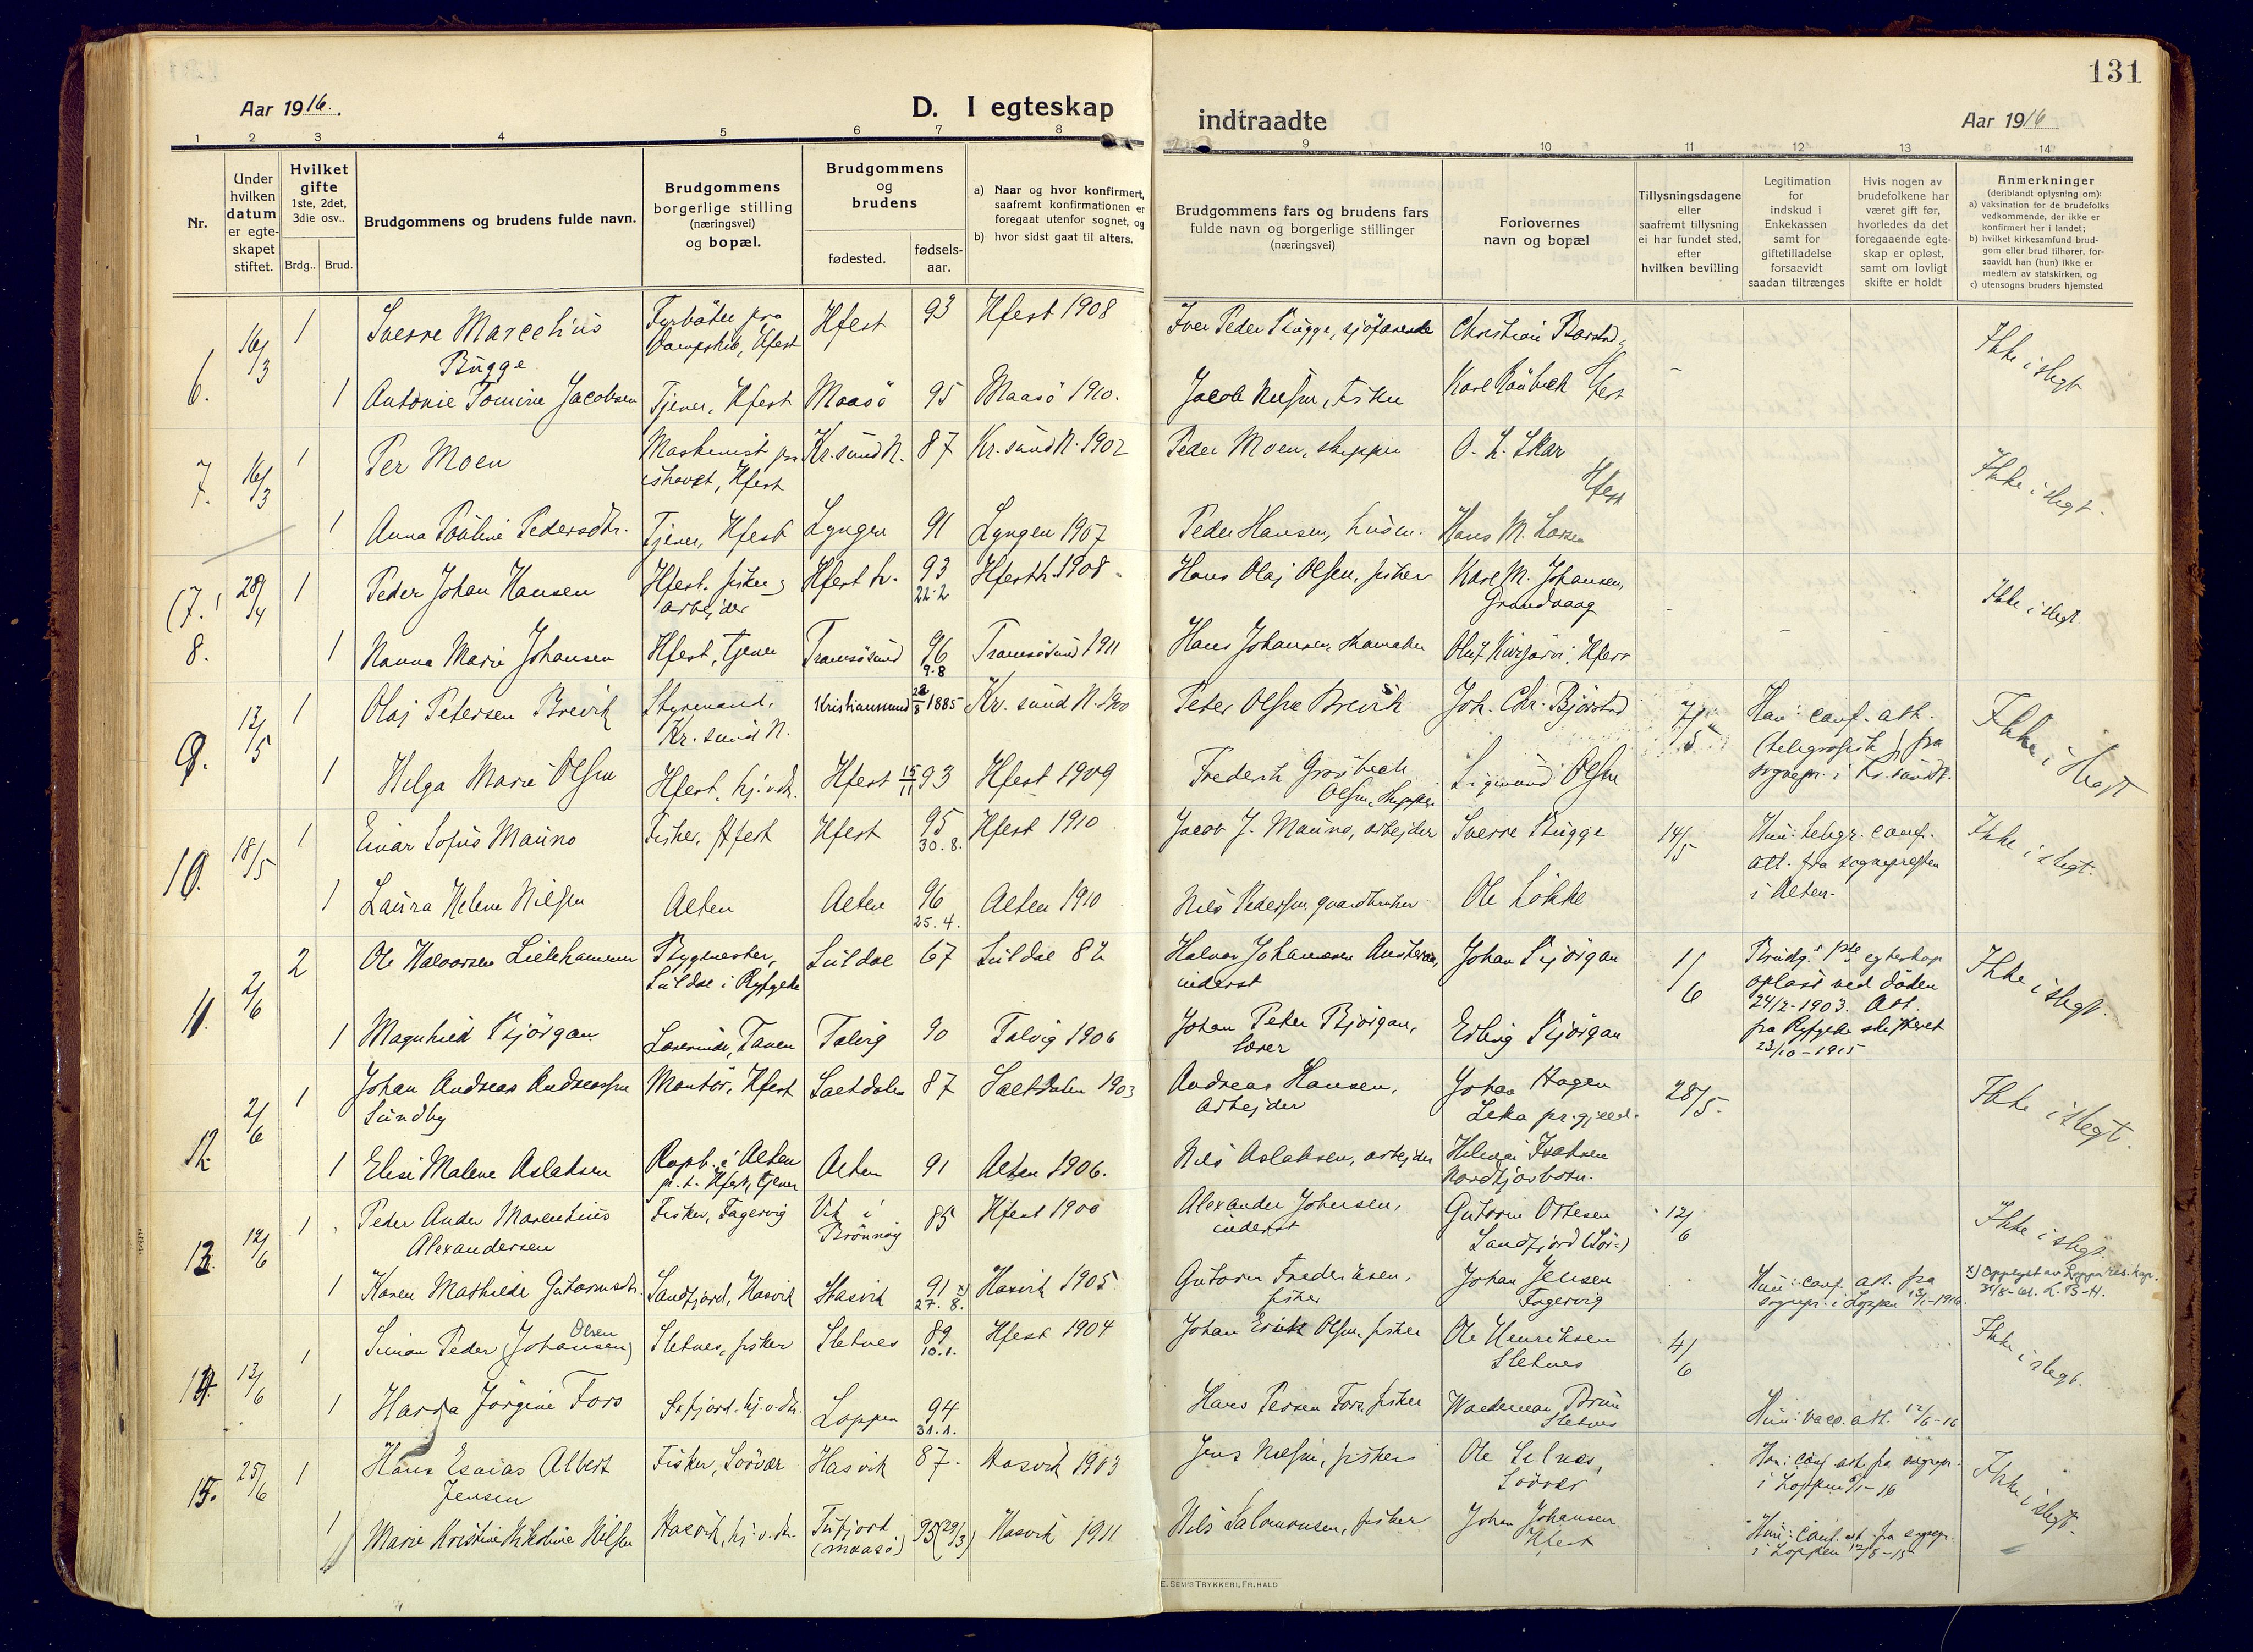 131
Aar 1916.
D. I egteskap indtraadte
Aar 1916
1 2 3 4 5 6 7 8 9 10 11 12 13 14
Nr.
Under hvilken datum er egteskapet stiftet.
Hvilket gifte 1ste, 2det, 3die osv..
Brdg.. Brud.
Brudgommens og brudens fulde navn.
Brudgommens borgerlige stilling (næringsvei) og bopæl.
Brudgommens og brudens
fødested.
fødsels-aar.
a) Naar og hvor konfirmert, saafremt konfirmationen er foregaat utenfor sognet, og
b) hvor sidst gaat til alters.
Brudgommens fars og brudens fars fulde navn og borgerlige stillinger (næringsvei)
Forlovernes navn og bopæl
Tillysningsdagene eller saafremt tillysning ei har fundet sted, efter hvilken bevilling
Legitimation for indskud i Enkekassen samt for giftetilladelse forsaavidt saadan tiltrænges
Hvis nogen av brudefolkene har været gift før, hvorledes da det foregaaende egteskap er opløst, samt om lovligt skifte er holdt
Anmerkninger
(deriblandt oplysning om):
a) vaksination for de brudefolks vedkommende, der ikke er konfirmert her i landet;
b) hvilket kirkesamfund brudgom eller brud tilhører, forsaavidt han (hun) ikke er medlem av statskirken, og
c) utensogns bruders hjemsted
6. 16/3 1 Sverre Marcelius Bugge
Hfest 93 Hfest 1908
Iver Peder Bugge, sjöfarende
Ikke i slegt
1 Antonie Tomine Jacobsen
Tjener, Hfest Maasö 95 Maasö 1910.
Jacob Nilsen, Fisker
Hfest
7. 16/3 1 Per Moen
Maskinist paa ishavet, Hfest
Kr.sund N. 87 Kr. sund N. 1902
Peder Moen, skipper
O. L. Skar
Hfest
Ikke i slegt.
1 Anna Pauline Pedersdtr.
Tjener, Hfest Lyngen 91 Lyngen 1907
Peder Hansen, husm.
Hans M. Larsen
(7.!) 8. 28/4 1 Peder Johan Hansen
Hfest. fisker og arbejder
Hfest h. 93 22.2 Hfest h. 1908.
Hans Olaj Olsen, fisker
Karl M. Johansen,
Ikke i slegt.
1 Nanna Marie Johansen
Hfest, tjener
Tromsösund 96 9.8 Tromsösund 1911
Hans Johansen,
9. 12/5 1 Olaj Petersen Brevik
Styrmand, Kr. sund N.
Kristianssund 22/8 1885 Kr. sund N. 1900
Peter Olsen Brevik
Joh. Chr. Björstad
7/5
Han: conf. att. (telegrafisk) fra sognepr. i Kr.sund N.
Ikke i slegt
1 Helga Marie Olsen
Hfest, hj.v.dtr.
Hfest 15/11 93 Hfest 1909
Frederik Grosbech Olsen, skipper
Sigmund Olsen
10. 18/5 1 Einar Sofus Mauno
Fisker, Hfest Hfest 95 30.8. Hfest 1910
Jacob J. Mauno, arbejder
Sverre Bugge
14/5
Hun: telegr. conf. att. fra sognepresten i Alten.
Ikke i slegt.
1 Laura Helene Nilsen
Alten Alten 96 25.4. Alten 1910
Nils Pedersen, gaardbruker
Ole Lökke
11. 2/6 2 Ole Halvorsen Lillehammer
Bygmester, Suldal i Ryfylke
Suldal 67 Suldal 82
inderst
Johan Bjørgan
1/6
Brudg.s 1ste egteskap oplöst ved döden 24/2-1903. Att. fra Ryfylke skifteret 23/10-1915
Ikke i slegt.
1 Magnhild Bjørgan
Lærerinde, Tanen
Talvig 90 Talvig 1906
Johan Peter Bjørgan, lærer
Erling Bjørgan
12. 2/6 1 Johan Andreas Andreassen Sundby
Montör, Hfest Saltdalen 87 Saltdalen 1903
Andreas Hansen, Arbejder
Johan Hagen
Leka pr.gjeld.
28/5.
Ikke i slegt.
1 Elise Malene Aslaksen
p.t. Hfest, tjener
Alten 91 Alten 1906.
Nils Aslaksen, arbejder
13. 12/6 1 Peder Ander Marentius Alexandersen
Fisker, Fagervig
Vik i Brönnöy 85 Hfest 1900
Alexander Johnsen, inderst
Gutorm Ottesen
Sandfjord (Sör-)
12/6
Ikke i slegt.
1 Karen Mathilde Gutormsdtr.
Sandfjord, Hasvik Hasvik 91 x) 27. 8. Hasvik 1905
Gutorm Frederiksen, fisker
Johan Jensen
Fagervig
Hun: conf. att. fra sognepr. i Loppen 13/1-1916.
14. 13/6 1 Simon Peder (Johansen) Olsen
Sletnes, fisker Sletnes 89 10.1. Hfest 1904
Johan Erik Olsen, fisker
Ole Henriksen
Sletnes
4/6
Ikke i slegt.
1 Harda Jörgine Fors
hj.v.dtr. Loppen 94 31.1.
Hans Persen Fors, fisker
Waldemar Brun
Sletnes
Hun: vacc. att. 12/6-16
15. 25/6 1 Hans Esaias Albert Jensen
Fisker, Sörvær Hasvik 87. Hasvik 1903
Jens Nilsen, fisker
Ole Selnes, Sörvær
Han: conf. att. fra sognepr. i Loppen
Ikke i slegt.
1 Marie Kristine Nikoline Nilsen
Hasvik, hj.v.dtr.
Tufjord (Maasö) 95 (29/3) Hasvik 1911
Nils Salomonsen, fisker
Johan Johansen
Hfest
Hun: conf. att. fra sognepr. i Loppen 12/8-15
E. SEM'S TRYKKERI, FR.HALD